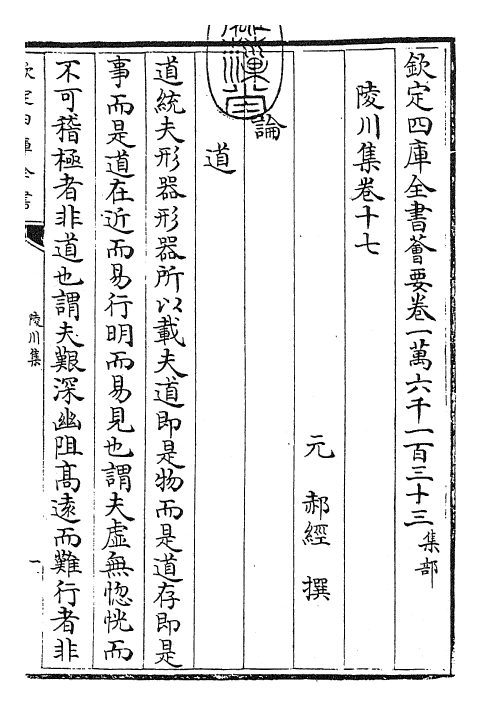 欽定四庫全書薈要卷一萬六千一百三十三 集部
陵川集卷十七
元 郝經 撰
論
道
道統夫形器形器所以載夫道即是物而是道存即是
事而是道在近而易行明而易見也謂夫虛無惚恍而
不可稽極者非道也謂夫艱深幽阻高遠而難行者非
欽定四庫全書
陵川集
一